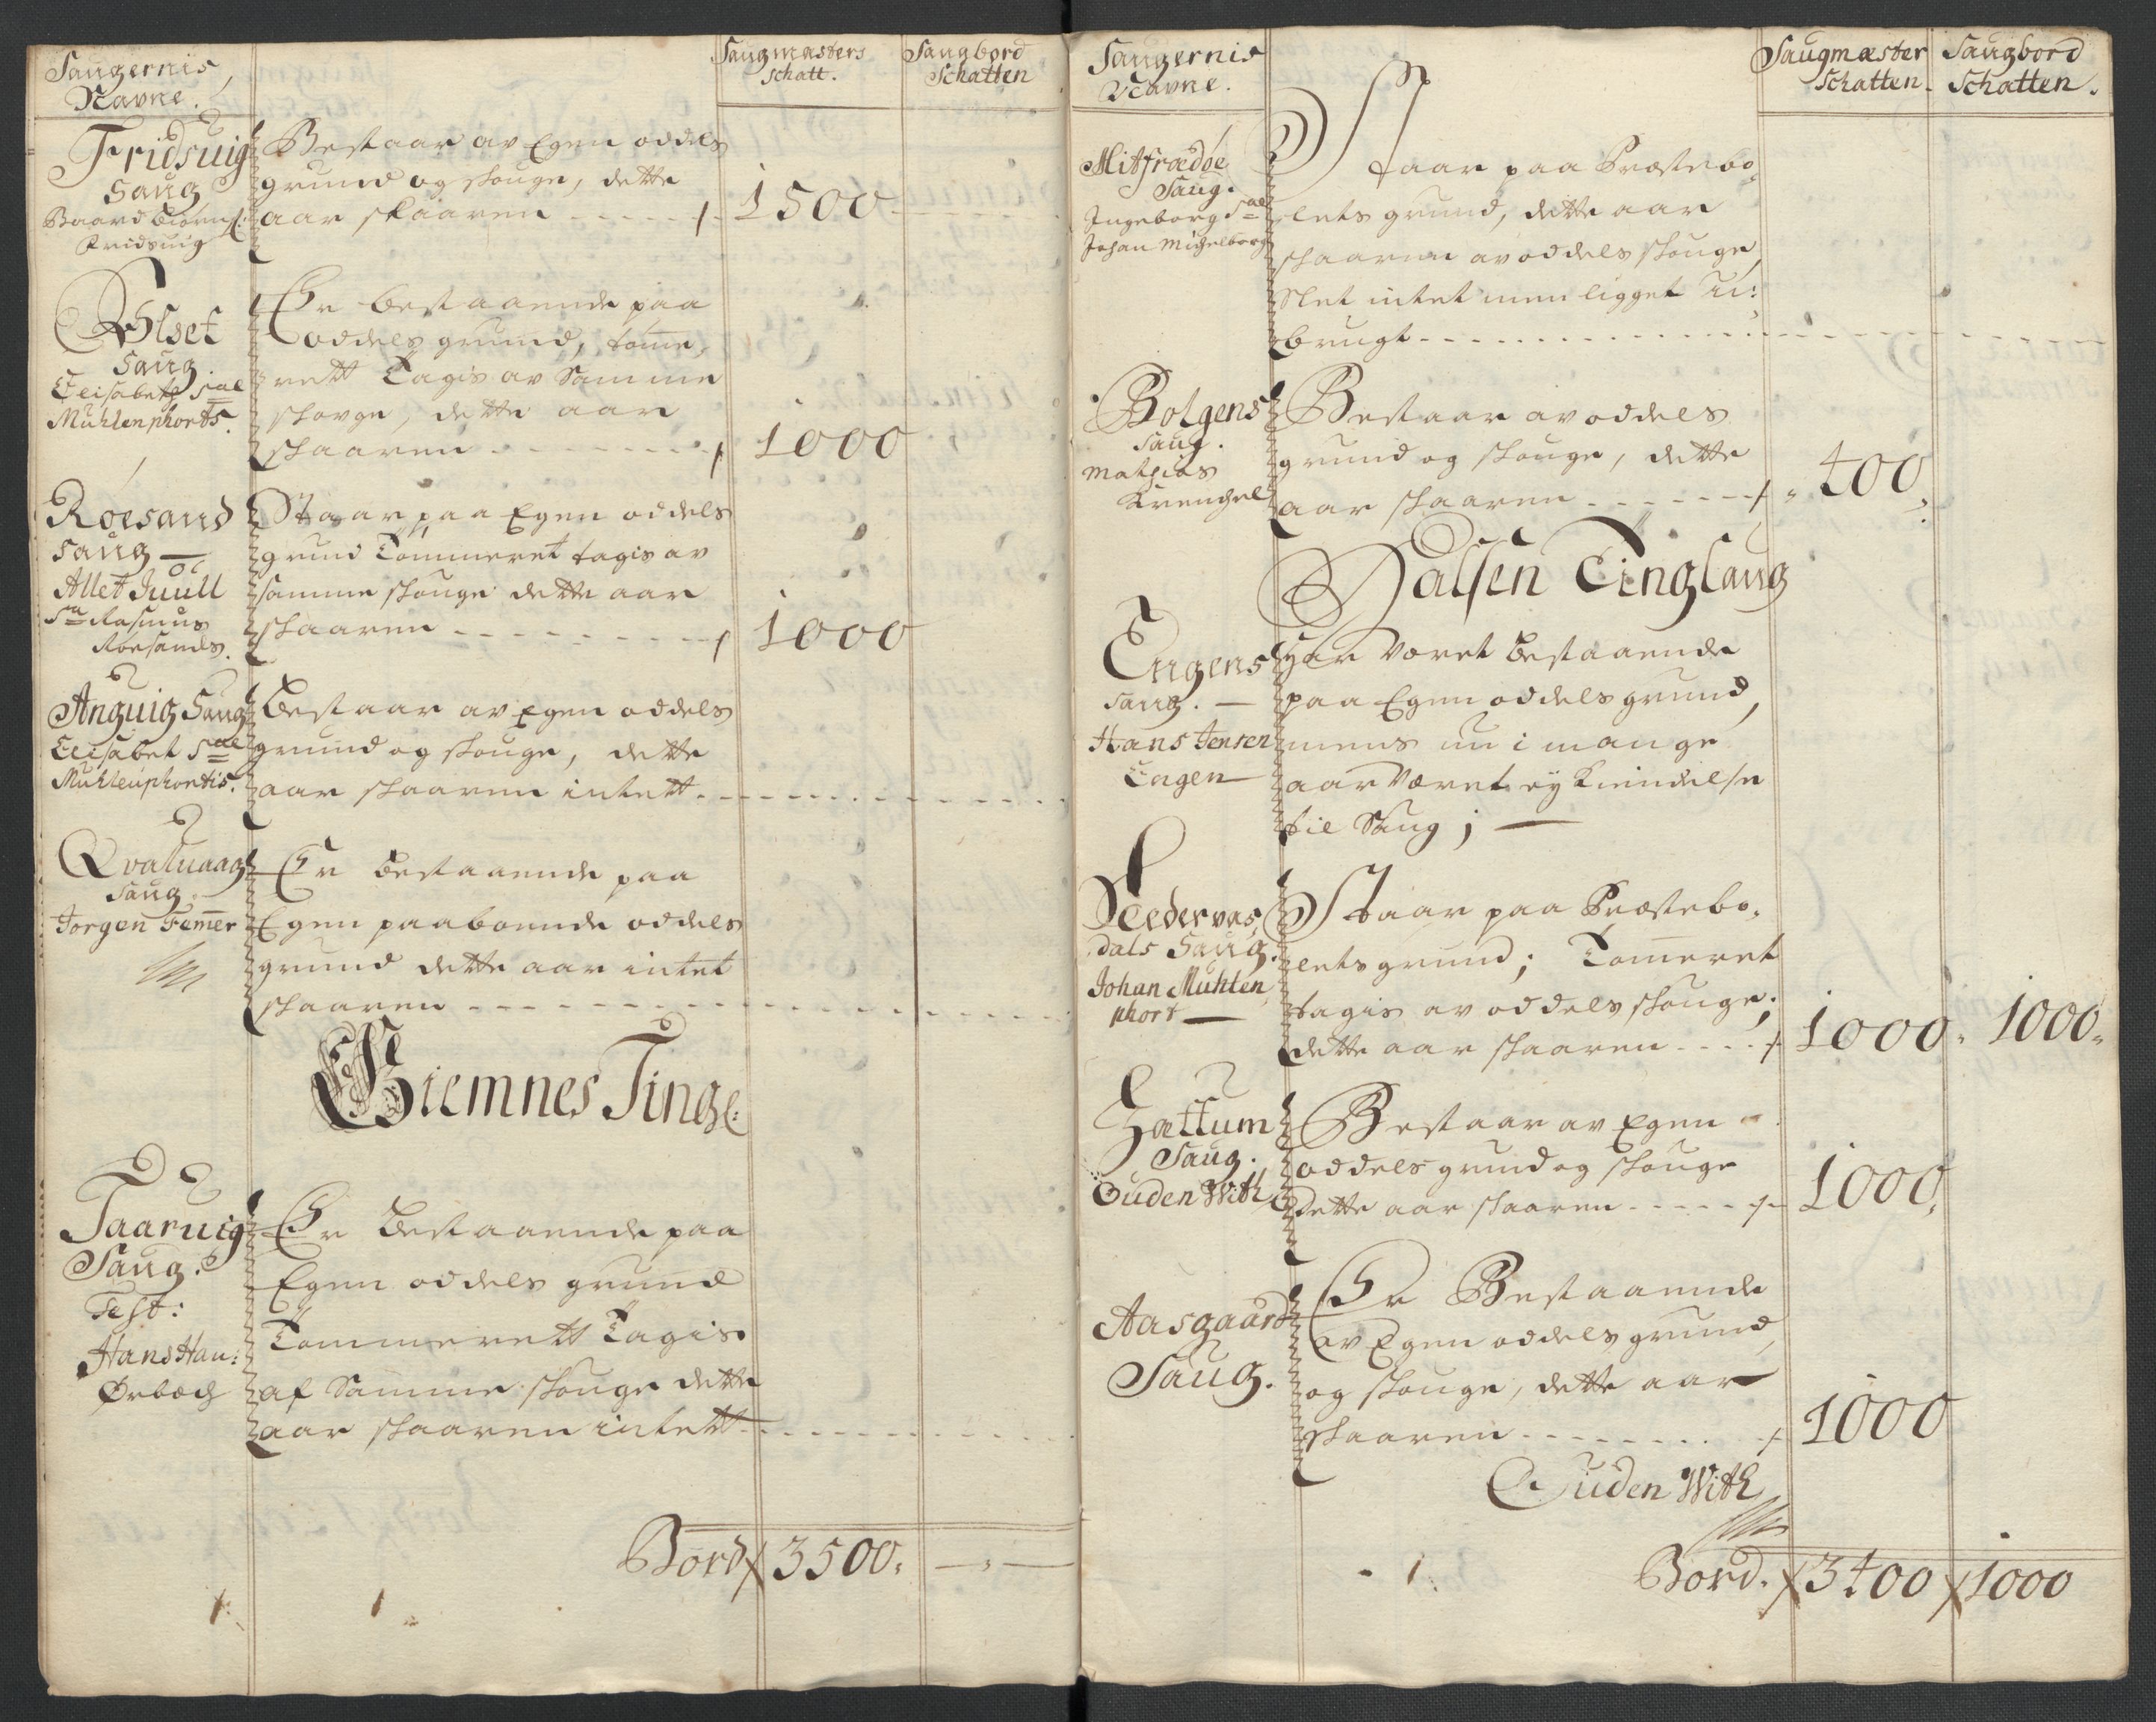 Saugernis
Navne.
Saugmesters
Schatt.
Saugbord
Schatten
Fridsuig
Saug
Baard Biørns:
Fridsuig
Bestaar av Egen oddels
grund og skouge, dette
aar skaaren
1500
Ølset
Saug
Elisabeth Sal
Muhlenphorts.
Er bestaaende paa
oddels grund, tøme,
rett Tagis av Samme
skovge, dette aar
skaaren
1000
Røesand
Saug
Allet Juull
Sa Rasmus
Røesands.
Staar paa Egen oddels
grund Tømmeret tagis av
samme skouge dette aar
skaaren
1000
Anguig Saug
Elisabet Sal
Muhlenphortis.
Bestaar av Egen oddels
grund og skouge, dette
aar skaaren intett
Qvaluaag
Saug.
Jørgen Femer
Er bestaaende paa
Egen paaboende oddels
grund dette aar intet
skaaren
Giemnes Tingl:
Taaruig
Saug.
Test:
Hans Han:
Ørbech
Er bestaaende paa
Egen oddels grund
Tømmerett Tagis
af Samme skouge dette
aar skaaren intett
Bord 3500.
Saugernis
Navne.
Saugmæster
Schatten.
Saugbord
Schatten.
Mitfrædøe
Saug.
Ingeborg Sal
Johan Michelborg
Staar paa Præstebo,
lets grund, dette aar
skaaren av oddels skouge,
Slet intet men ligget U:
brugt
Bolgens
Saug.
Mathias
Krenchel
Bestaar av oddels
grund og skouge, dette
aar skaaren
400
Halsen Tinglaug
Engens
Saug.
Hans Jensen
Engen
Har Været bestaaende
paa Egen oddels grund,
mens nu i mange
aar Været ey Kiendelse
til Saug;
Nedervas,
dals Saug.
Johan Muhlen
phort
Staar paa Præstebo,
lets grund; Tømeret
tagis av oddels skouge;
dette aar skaaren
1000. 1000.
Hættum
Saug.
Ouden With
Bestaar av Egen
oddels grund og skouge
dette aar skaaren
1000,
Aasgaard
Saug.
Er Bestaaende
av Egen oddels grund,
og skouge, dette aar
skaaren
1000
Ouden With
Bord. 3400 1000